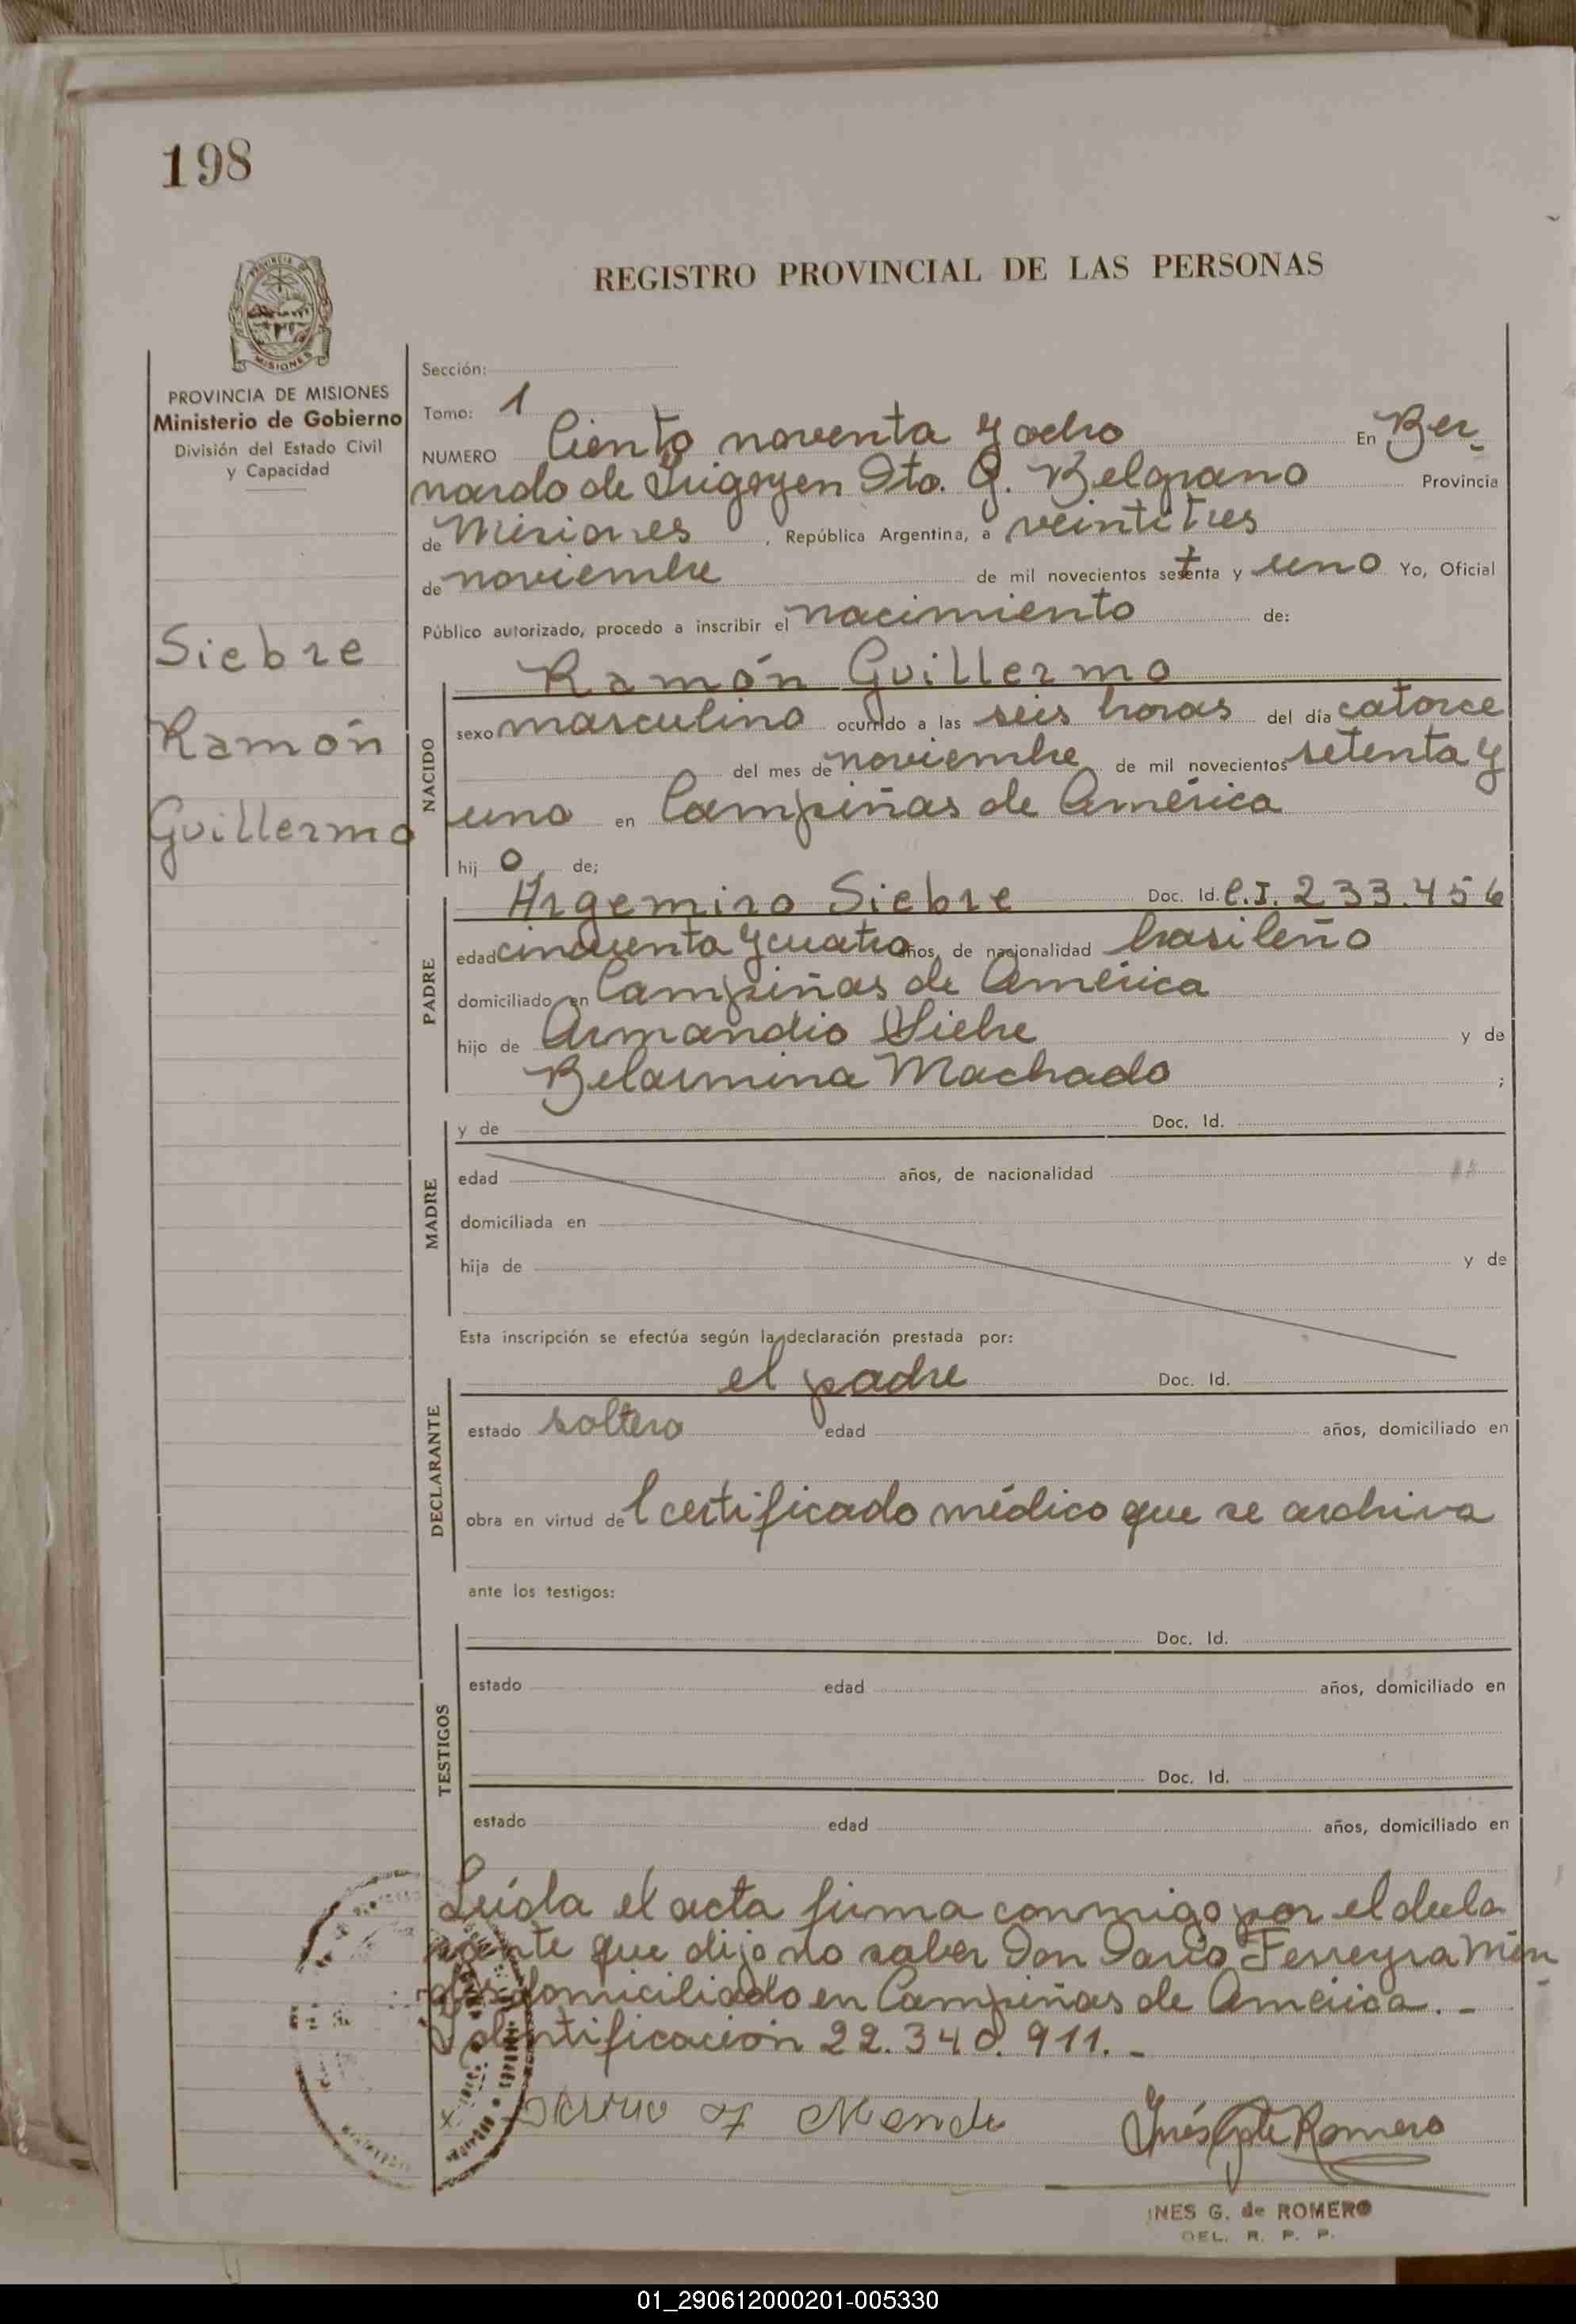 198
REGISTRO PROVINCIAL DE LAS PERSONAS
MISIONES
PROVINCIA DE MISIONES
Ministerio de Gobierno
División del Estado Civil
y Capacidad
Siebre
Ramón
Guillermo
Sección:
Tomo: 1
NUMERO Ciento noventa y ocho En Ber-
nardo de Irigoyen Dto. G. Belgrano Provincia
de Misiones , República Argentina, a veintitres
de noviembre de mil novecientos setenta y uno Yo, Oficial
Público autorizado, procedo a inscribir el nacimiento de:
NACIDO
Ramón Guillermo
sexo masculino ocurrido a las seis horas del día catorce
del mes de noviembre de mil novecientos setenta y
uno en Campiñas de América
hij o de;
PADRE
Argemiro Siebre Doc. Id. C.I. 233.456
edad cincuenta y cuatro años, de nacionalidad brasileño
domiciliado en Campiñas de América
hijo de Armandio Siebre y de
Belarmina Machado ;
MADRE
y de Doc. Id.
edad años, de nacionalidad
domiciliada en
hija de y de
Esta inscripción se efectúa según la declaración prestada por:
DECLARANTE
el padre Doc. Id.
estado soltero edad años, domiciliado en
obra en virtud de l certificado médico que se archiva
ante los testigos:
TESTIGOS
Doc. Id.
estado edad años, domiciliado en
Doc. Id.
estado edad años, domiciliado en
Leída el acta firma conmigo por el decla
rante que dijo no saber Don Dario Ferreyra Mén
dez domiciliado en Campiñas de América. -
Identificación 22.340.911. -
x Dario F Mende
Inés Gte Romero
INES G. de ROMERO
DEL. R. P. P.
01_290612000201-005330